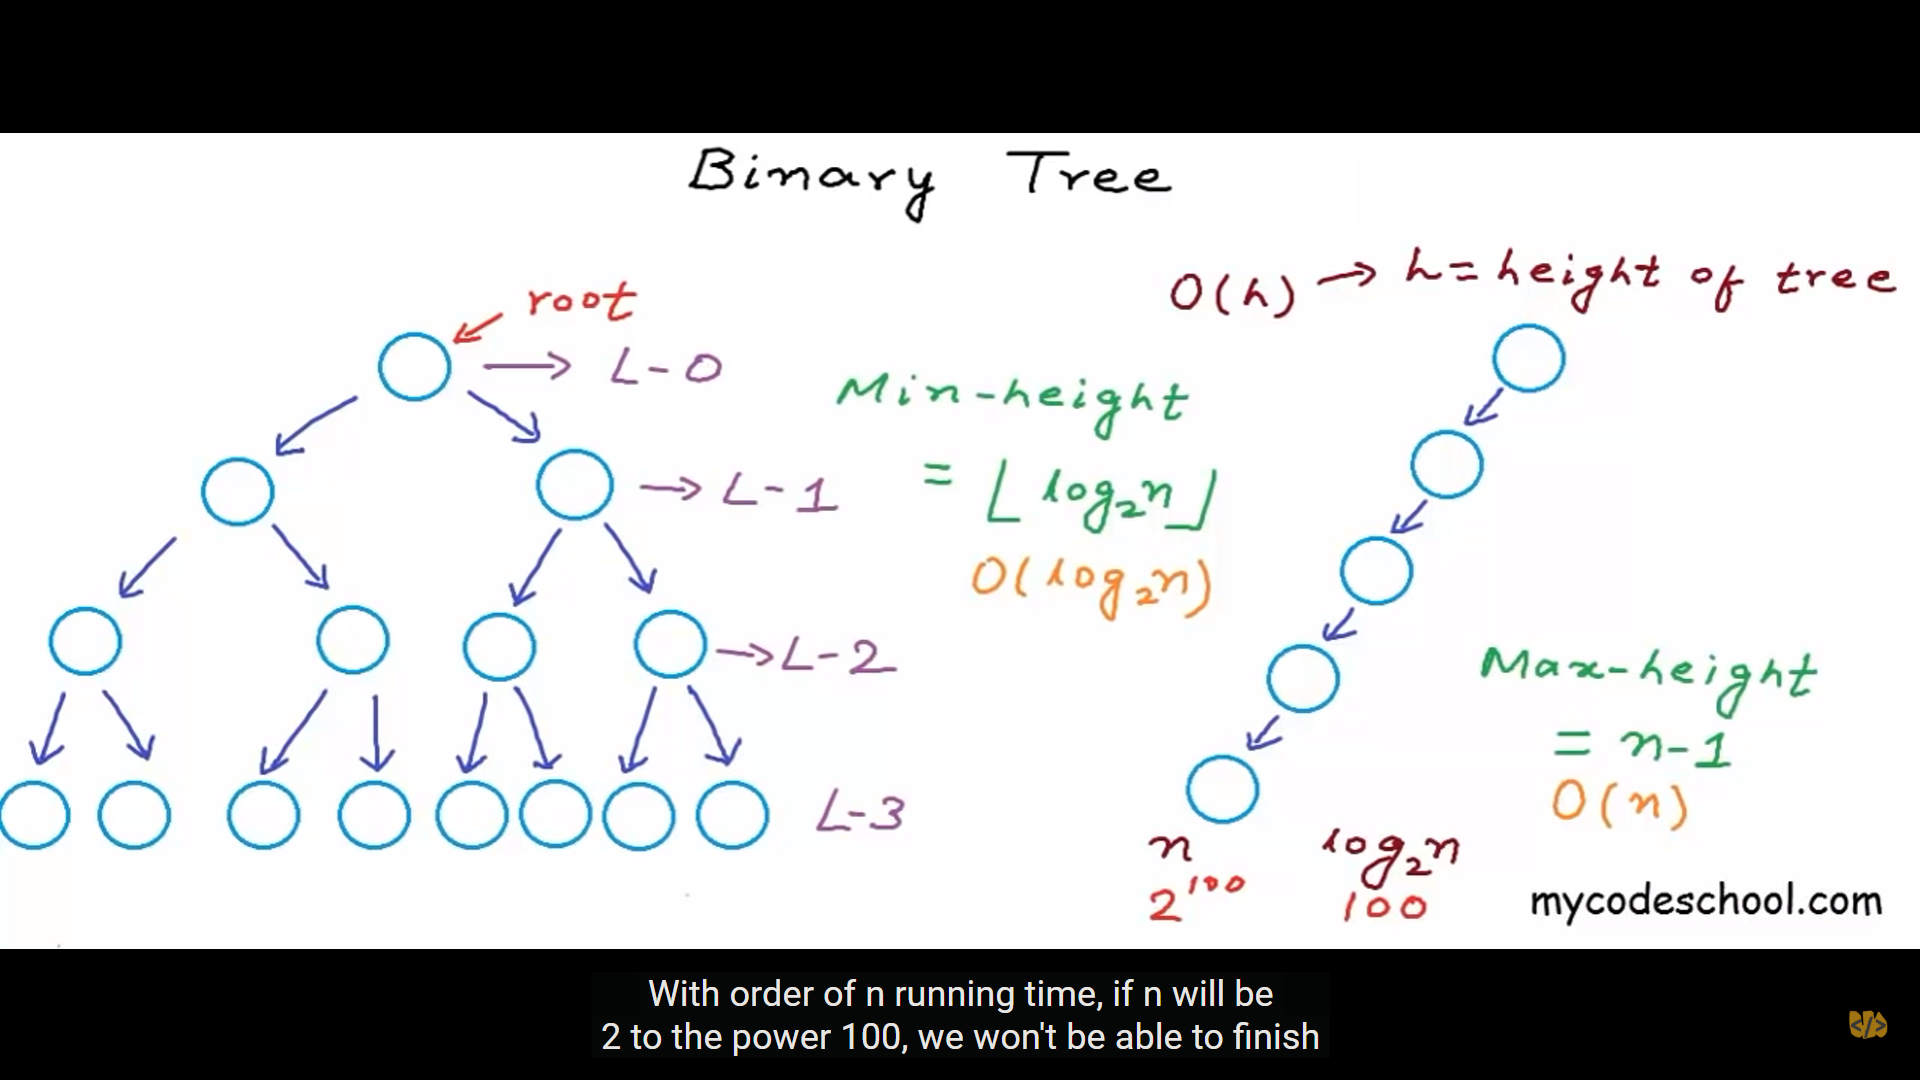 Binary Tree
O(h) → h = height of tree
root
→ L-0
Min-height
= ⌊log₂n⌋
O(log₂n)
→ L-1
→ L-2
L-3
Max-height
= n-1
O(n)
n log₂n
2¹⁰⁰ 100
mycodeschool.com
With order of n running time, if n will be
2 to the power 100, we won't be able to finish